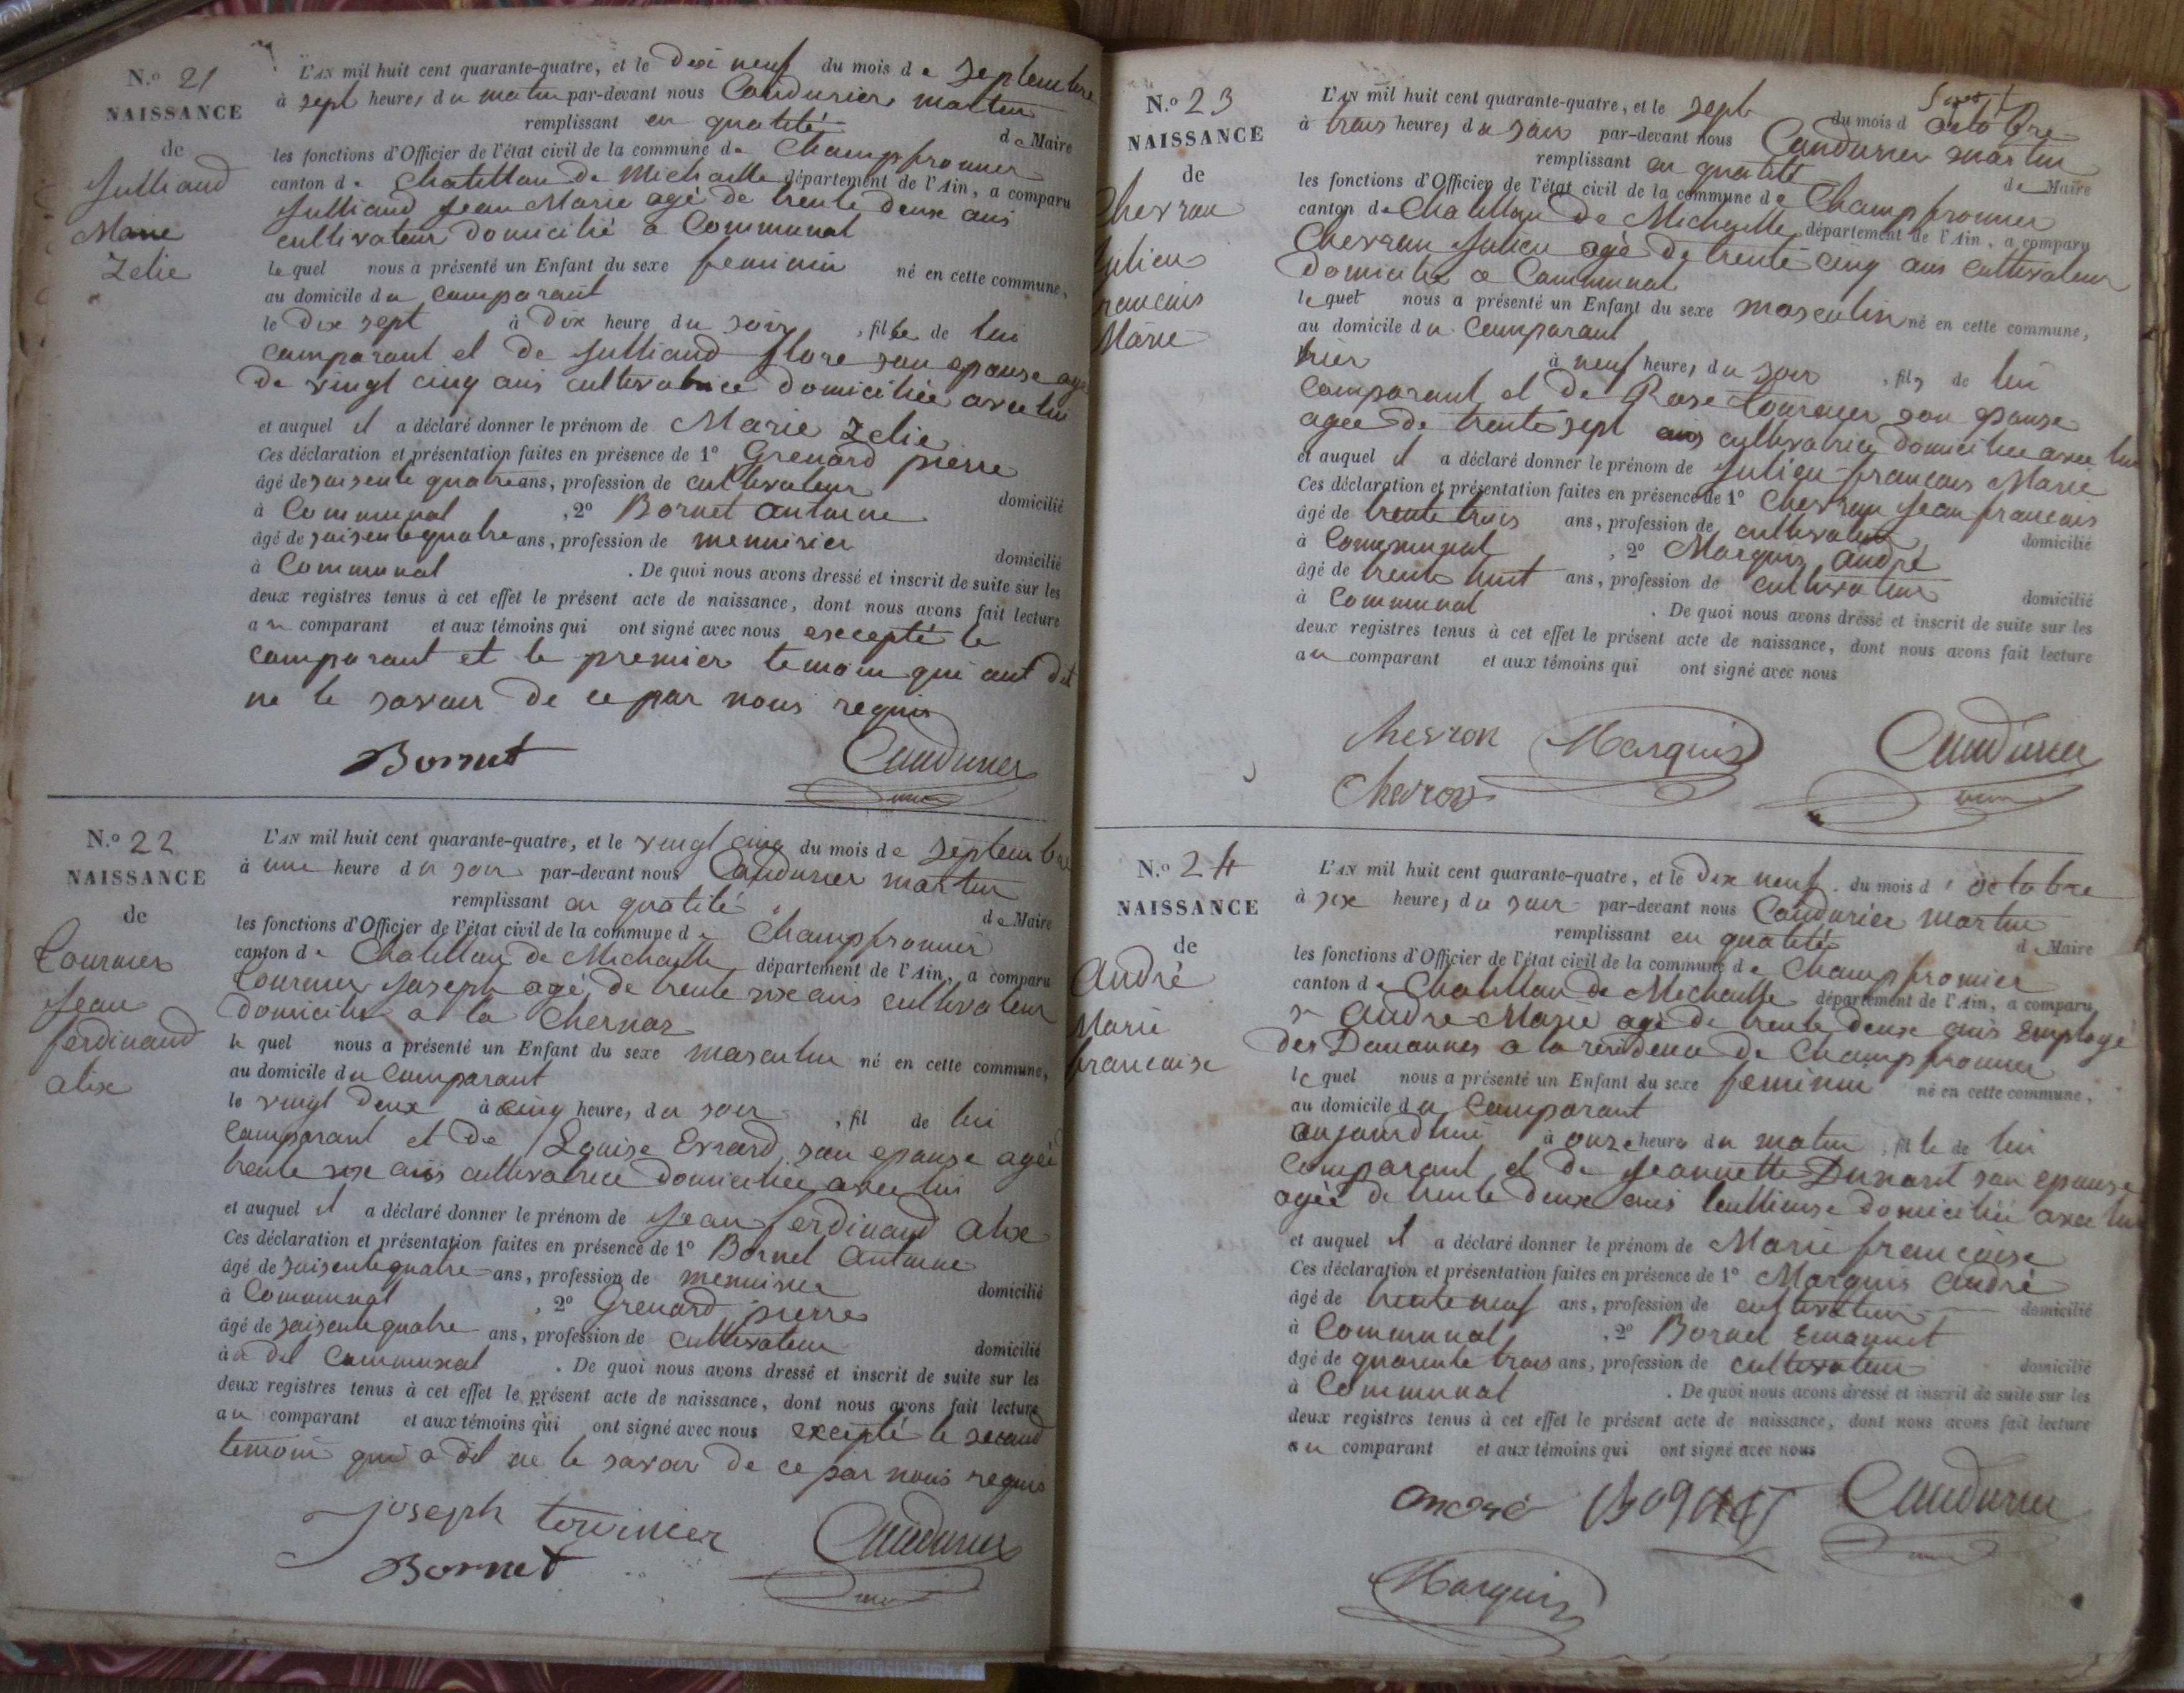 N.o 21
NAISSANCE
de
Julliand
Marie
Zelie
L'AN mil huit cent quarante-quatre, et le dix neuf du mois de septembre
à sept heure, du matin par-devant nous Coudurier martin
remplissant en qualité de Maire
les fonctions d'Officier de l'état civil de la commune de Champfromier
canton de Chatillon de Michaille département de l'Ain, a comparu
Julliand Jean Marie agé de trente deux ans
cultivateur domicilié a Communal
lequel nous a présenté un Enfant du sexe feminin né en cette commune,
au domicile du comparant
le dix sept à dix heure du soir, fille de lui
comparant et de Julliand flore son epouse agé
de vingt cinq ans cultivatrice domiciliée avec lui
et auquel il a déclaré donner le prénom de Marie Zelie
Ces déclaration et présentation faites en présence de 1o Grenard pierre
âgé de soisente quatre ans, profession de cultivateur domicilié
à Communal, 2o Bornet antoine
âgé de soisente quatre ans, profession de menuisier domicilié
à Communal. De quoi nous avons dressé et inscrit de suite sur les
deux registres tenus à cet effet le présent acte de naissance, dont nous avons fait lecture
au comparant et aux témoins qui ont signé avec nous excepté le
comparant et le premier temoin qui ont dit
ne le savoir de ce par nous requis
Bornet Coudurier
N.o 22
NAISSANCE
de
Tournier
Jean
ferdinand
alix
L'AN mil huit cent quarante-quatre, et le vingt cinq du mois de septembre
à une heure du soir par-devant nous Coudurier martin
remplissant en qualité de Maire
les fonctions d'Officier de l'état civil de la commune de Champfromier
canton de Chatillon de Michaille département de l'Ain, a comparu
Tournier Joseph agé de trente six ans cultivateur
domicilié a la Chernaz
lequel nous a présenté un Enfant du sexe masculin né en cette commune,
au domicile du comparant
le vingt deux à cinq heure, du soir, fil de lui
comparant et de Louise Evrard son epouse agée
trente six ans cultivatrice domiciliée avec lui
et auquel il a déclaré donner le prénom de Jean ferdinand alix
Ces déclaration et présentation faites en présence de 1o Bornet antoine
âgé de soisente quatre ans, profession de menuisier domicilié
à Communal, 2o Grenard pierre
âgé de soisente quatre ans, profession de cultivateur domicilié
à u dit Communal. De quoi nous avons dressé et inscrit de suite sur les
deux registres tenus à cet effet le présent acte de naissance, dont nous avons fait lecture
au comparant et aux témoins qui ont signé avec nous excepté le second
temoin qui a dit ne le savoir de ce par nous requis
Joseph tournier Coudurier
Bornet
N.o 23
NAISSANCE
de
Chevron
Julien
francois
Marie
L'AN mil huit cent quarante-quatre, et le sept du mois d octobre
à trois heure, du soir par-devant nous Coudurier martin
remplissant en qualité de Maire
les fonctions d'Officier de l'état civil de la commune de Champfromier
canton de Chatillon de Michaille département de l'Ain, a comparu
Chevron Julien agé de trente cinq ans cultivateur
domicilié a Communal
lequel nous a présenté un Enfant du sexe masculin né en cette commune,
au domicile du comparant
hier à neuf heure, du soir, fils de lui
comparant et de Rose Tournier son epouse
agée de trente sept ans cultivatrice domiciliée avec lui
et auquel il a déclaré donner le prénom de Julien francois Marie
Ces déclaration et présentation faites en présence de 1o Chevron Jean francois
âgé de trente trois ans, profession de cultivateur domicilié
à Communal, 2o Marquis andré
âgé de trente huit ans, profession de cultivateur domicilié
à Communal. De quoi nous avons dressé et inscrit de suite sur les
deux registres tenus à cet effet le présent acte de naissance, dont nous avons fait lecture
au comparant et aux témoins qui ont signé avec nous
chevron Marquis Coudurier
Chevron
N.o 24
NAISSANCE
de
André
Marie
francoise
L'AN mil huit cent quarante-quatre, et le dix neuf du mois d'octobre
à six heure, du soir par-devant nous Coudurier martin
remplissant en qualité de Maire
les fonctions d'Officier de l'état civil de la commune de Champfromier
canton de Chatillon de Michaille département de l'Ain, a comparu
sr André Marie agé de trente deux ans Employé
des Douannes a la residence de Champfromier
lequel nous a présenté un Enfant du sexe feminin né en cette commune,
au domicile du comparant
aujourdhui à onze heure du matin, fille de lui
comparant et de Jeannette Dunant son epouse
agée de trente deux ans domiciliée avec lui
et auquel il a déclaré donner le prénom de Marie francoise
Ces déclaration et présentation faites en présence de 1o Marquis andré
âgé de trente neuf ans, profession de cultivateur domicilié
à Communal, 2o Bornet Emannuel
âgé de quarente trois ans, profession de cultivateur domicilié
à Communal. De quoi nous avons dressé et inscrit de suite sur les
deux registres tenus à cet effet le présent acte de naissance, dont nous avons fait lecture
au comparant et aux témoins qui ont signé avec nous
andré Bornet Coudurier
Marquis